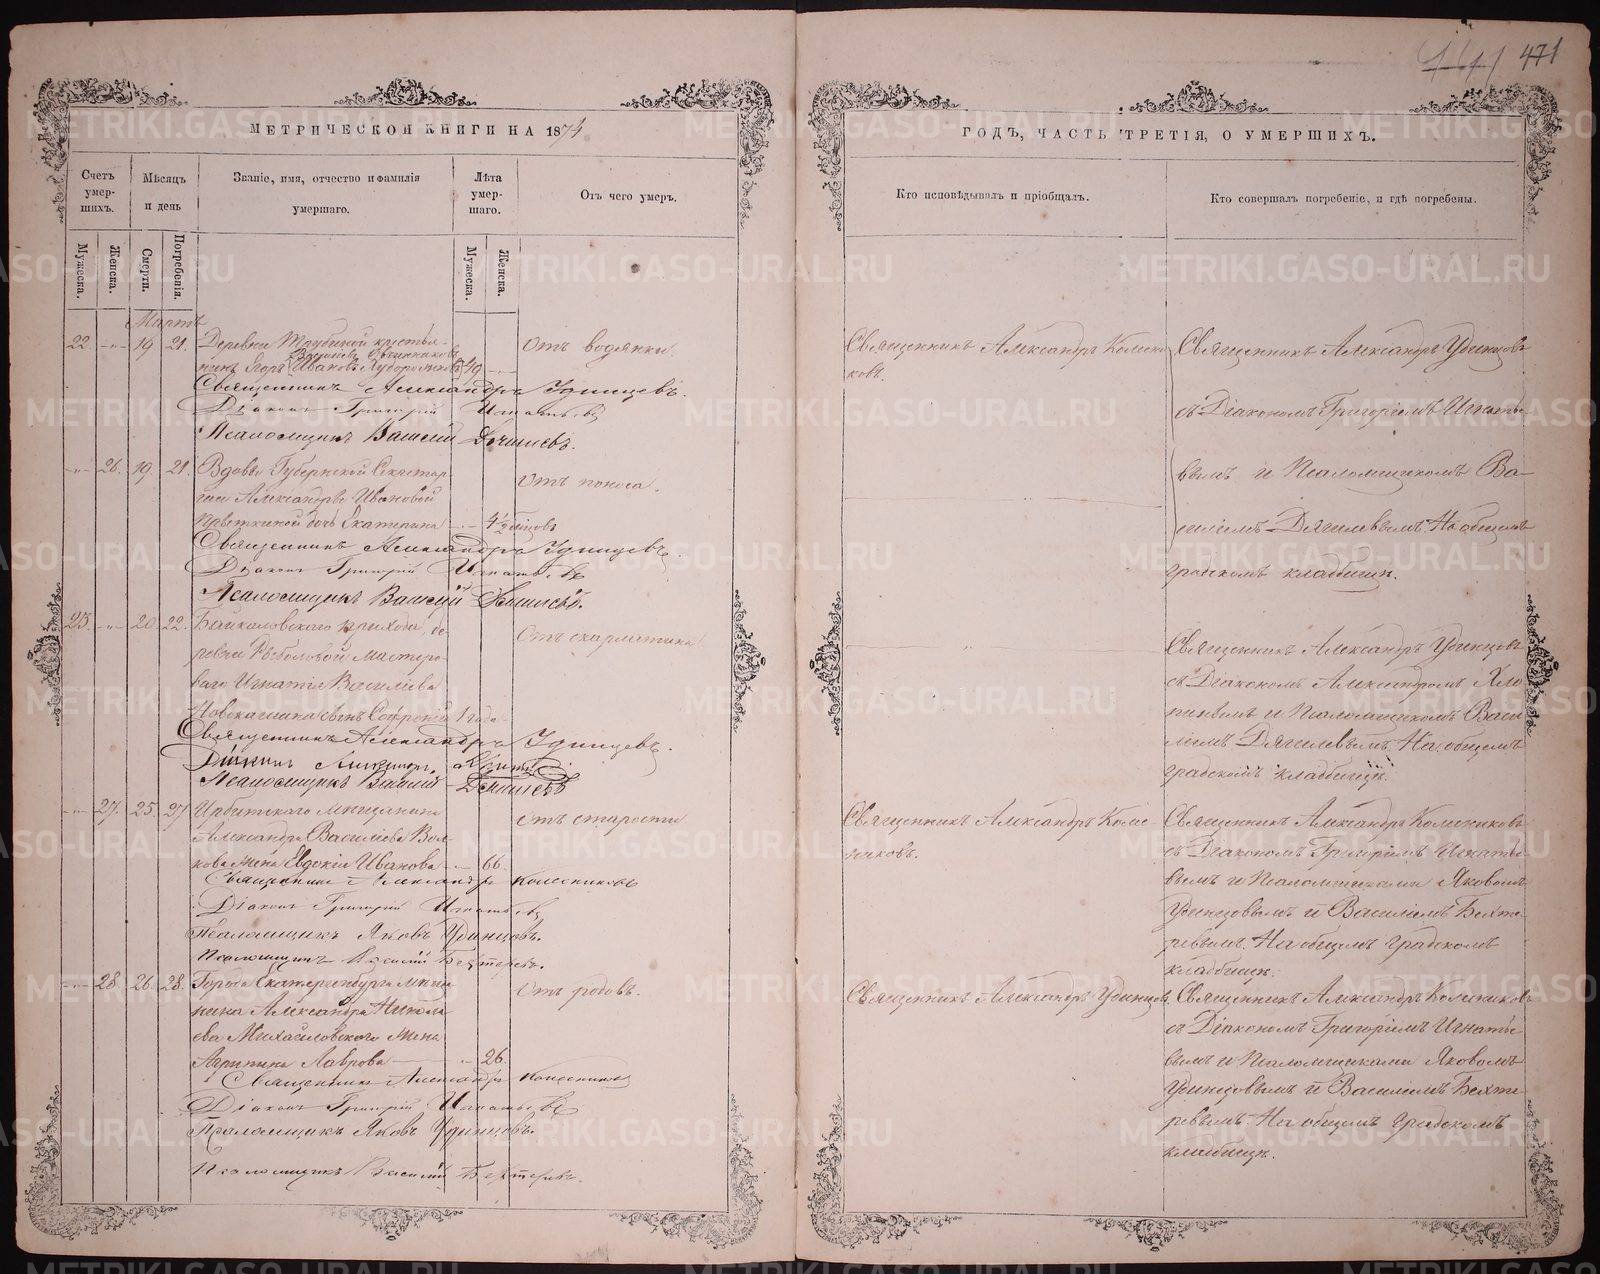 471
МЕТРИЧЕСКОЙ КНИГИ НА 1874
ГОДЪ, ЧАСТЬ ТРЕТІЯ, О УМЕРШИХЪ.
Счетъ умер-шихъ.
Мѣсяцъ и день
Званіе, имя, отчество и фамилія умершаго.
Лѣта умер-шаго.
Отъ чего умеръ.
Кто исповѣдывалъ и пріобщалъ.
Кто совершалъ погребеніе, и гдѣ погребены.
Мужеска.
Женска.
Смерти.
Погребенія.
Мужеска.
Женска.
Мартъ
22. -"- 19 21. Деревни Трубиной крестья-
нинъ Егоръ Ивановъ 49
Отъ водянки.
Священникъ Александръ Колесни
ковъ.
Священникъ Александръ Удинцовъ
съ Діакономъ Григоріемъ Игнатье-
вымъ и Псаломщикомъ Ва-
силіемъ Дягилевымъ. На общемъ
градскомъ кладбищѣ.
Священникъ Александръ Удинцевъ.
Діаконъ Григорій Игнатьевъ
Псаломщикъ Василій
-"- 26. 19 21. Вдовы Губернской Секретар-
ши Александры Ивановой
дочь Екатерина 4½ мѣсяцовъ
Отъ поноса.
Священникъ Александръ Удинцевъ.
Діаконъ Григорій Игнатьевъ
Псаломщикъ Василій
23. -"- 20. 22. Байкаловскаго прихода, де-
ревни Мастеро-
ваго Игнатія Васильева
сынъ Софроній 1 года
Отъ скарлатины
Священникъ Александръ Удинцовъ
съ Діакономъ Александромъ Хло
пинымъ и Псаломщикомъ Васи
ліемъ Дягилевымъ. На общемъ
градскомъ кладбищѣ.
Священникъ Александръ Удинцевъ.
Псаломщикъ Василій
-"- 27. 25. 27 Ирбитскаго мѣщанина
Александра Васильева Вол-
кова жена Евдокія Иванова 66
Отъ старости
Священникъ Александръ Колес
никовъ.
Священникъ Александръ Колесниковъ
съ Діакономъ Григоріемъ Игнатье
вымъ и Псаломщиками Яковомъ
Удинцовымъ и Василіемъ Бехте
ревымъ. На общемъ градскомъ
кладбищѣ.
Священникъ Александръ Колесниковъ
Діаконъ Григорій Игнатьевъ
Псаломщикъ Яковъ Удинцовъ.
Псаломщикъ Василій Бехтеревъ.
-"- 28 26. 28. Города Екатеринбурга мѣща
нина Александра Никола
ева Михайловскаго жена
Агрипина Лаврова 26.
Отъ родовъ.
Священникъ Александръ Удинцов
Священникъ Александръ Колесниковъ
съ Діакономъ Григоріемъ Игнатье
вымъ и Псаломщиками Яковомъ
Удинцовымъ и Василіемъ Бехте
ревымъ. На общемъ градскомъ
кладбищѣ.
Священникъ Александръ Колесниковъ
Діаконъ Григорій Игнатьевъ
Псаломщикъ Яковъ Удинцовъ.
Псаломщикъ Василій Бехтеревъ.
METRIKI.GASO-URAL.RU